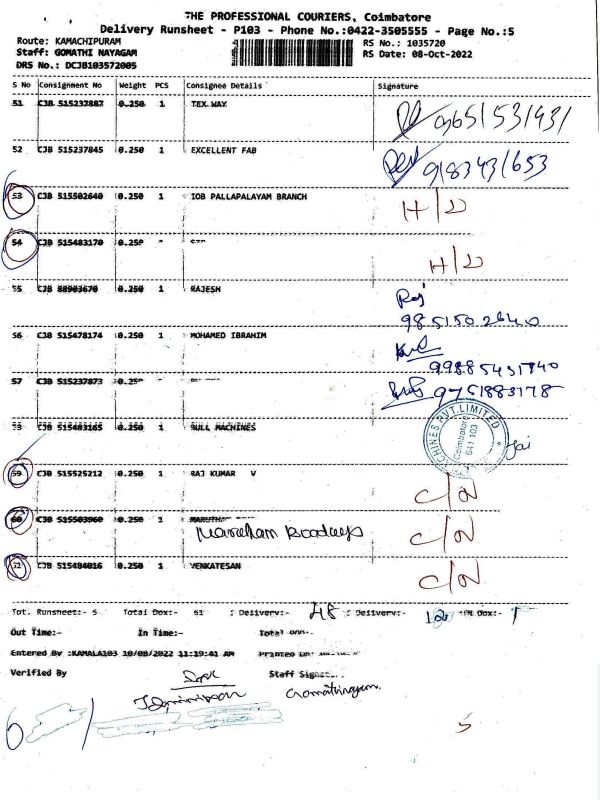 THE PROFESSIONAL COURIERS, Coimbatore
Delivery Runsheet - P103 - Phone No.:0422-3505555 - Page No.:5
Route: KAMACHIPURAM
RS No.: 1035720
Staff: GOMATHI NAYAGAM
RS Date: 08-Oct-2022
DRS No.: DCJB103572005
S No Consignment No Weight PCS Consignee Details Signature
51 CJB 515237887 0.250 1 TEX WAY
52 CJB 515237845 0.250 1 EXCELLENT FAB 9183431653
53 CJB 515502640 0.250 1 IOB PALLAPALAYAM BRANCH H/D
54 CJB 515483170 0.250 H/D
55 CJB 88903670 0.250 1 RAJESH Raj
9851502640
56 CJB 515478174 0.250 1 MOHAMED IBRAHIM
57 CJB 515237873 0.250 9751883178
CJB 515483165 0.250 1 BULL MACHINES
CHINES PVT.LIMITED
Coimbatore
641 103
59 CJB 515525212 0.250 1 RAJ KUMAR V C/N
60 CJB 515503960 0.250 1 C/N
CJB 515484016 0.250 1 VENKATESAN C/N
Tot. Runsheet:- 5 Total Dox:- 61 Delivery:- 48 Delivery:- Dox:- 1
Out Time:- In Time:-
Entered By :KAMALA103 10/08/2022 11:19:41 AM
Verified By Staff
5